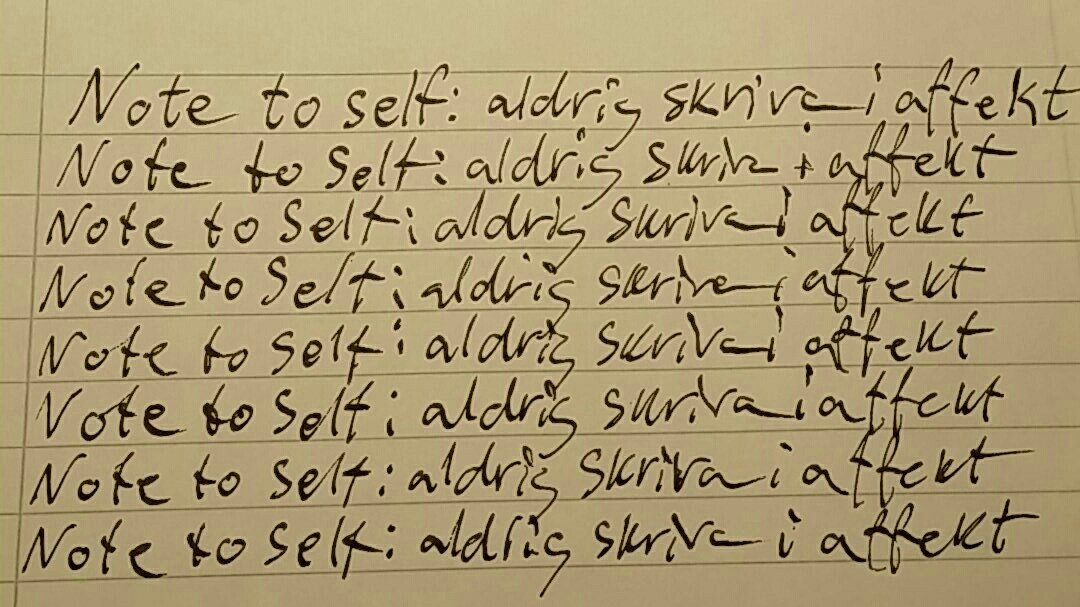 Note to self: aldrig skriva i affekt
Note to self: aldrig skriva i affekt
Note to Self: aldrig skriva i affekt
Note to Self: aldrig skriva i affekt
Note to self: aldrig skriva i affekt
Note to self: aldrig skriva i affekt
Note to self: aldrig skriva i affekt
Note to self: aldrig skriva i affekt